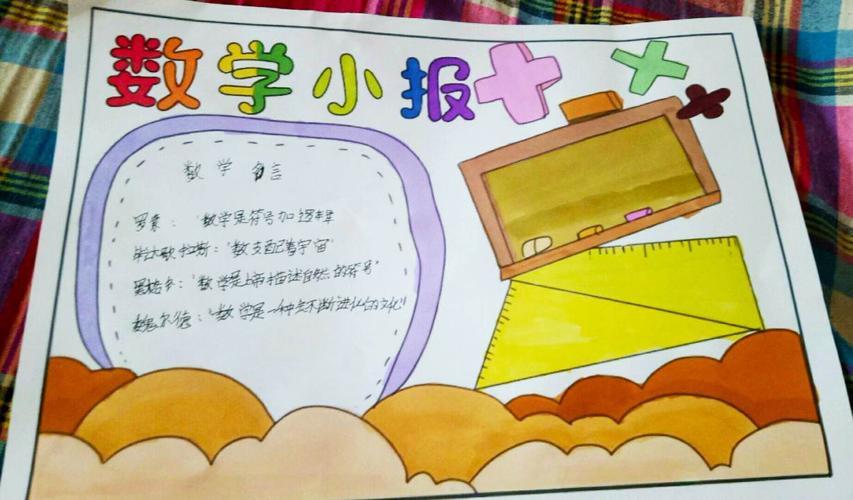 数学小报
数学名言
罗素："数学是符号加逻辑"
毕达哥拉斯："数支配着宇宙"
黑格尔："数学是上帝描述自然的符号"
魏尔德："数学是一种会不断进化的文化"